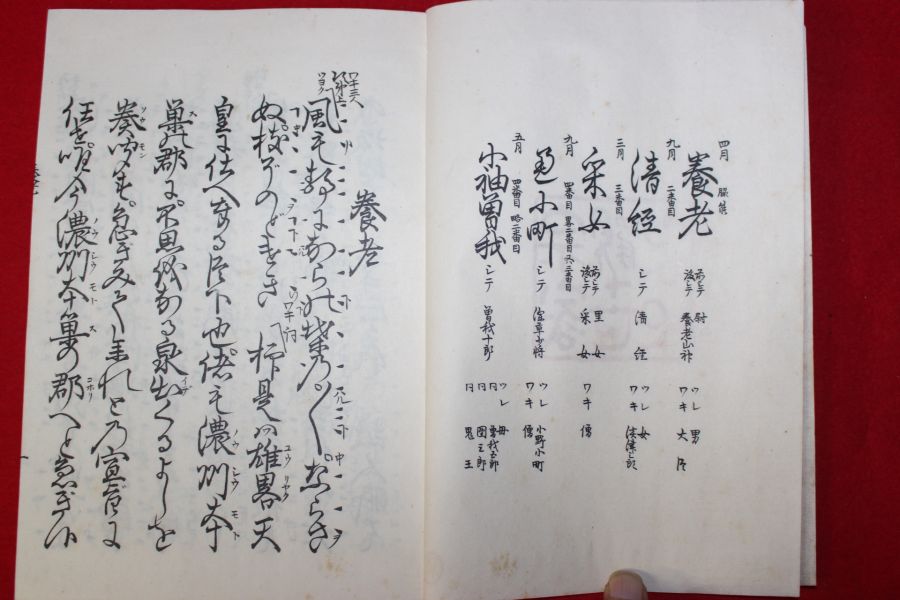 四月 脇能
養老
前シテ 尉
後シテ 養老山神
ツレ 男
ワキ 大臣
九月 二番目
清経
シテ 清経
ツレ 女
ワキ 淡津三郎
三月 三番目
采女
前シテ 里女
後シテ 采女
ワキ 僧
九月 四番目 略二番目
通小町
シテ 深草少将
ツレ 小野小町
ワキ 僧
五月 四番目 略二番目
小袖曽我
シテ 曽我十郎
ツレ 母
同 曽我五郎
同 団三郎
同 鬼王
養老
ワキ三人
風も静にならの葉の
ならさぬ枝ぞのどけき
ワキ詞 抑是ハ雄畧天
皇に仕へ奉る臣下也偖も濃州本
巣の郡に不思儀なる泉出くるよしを
奏聞す急ぎみてまれとの宣旨に
任せ唯今濃州本巣の郡へと急ぎ候